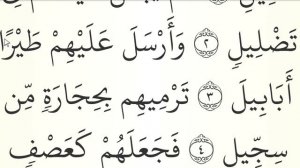 تَضْلِيلٍ ۝٢ وَأَرْسَلَ عَلَيْهِمْ طَيْرًا
أَبَابِيلَ ۝٣ تَرْمِيهِم بِحِجَارَةٍ مِّن
سِجِّيلٍ ۝٤ فَجَعَلَهُمْ كَعَصْفٍ